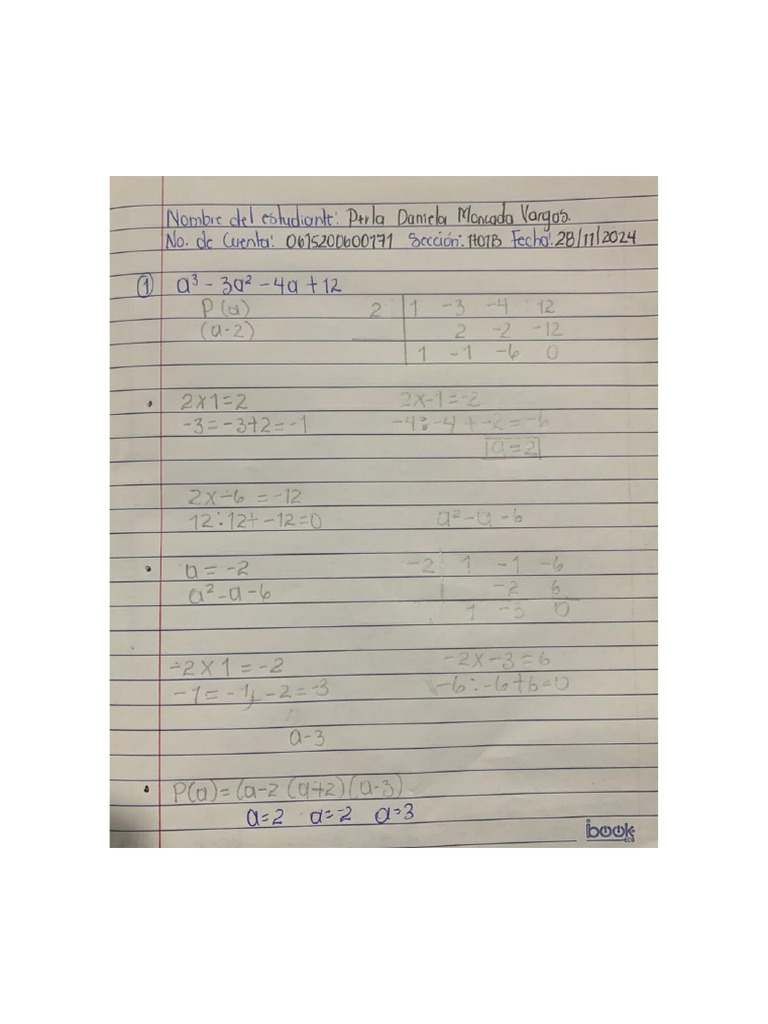 Nombre del estudiante: Perla Daniela Moncada Vargas.
No. de Cuenta: 0615200600171 Sección: 1101B Fecha: 28/11/2024
1 a³ - 3a² - 4a + 12
P(a) 2 1 -3 -4 12
(a-2) 2 -2 -12
1 -1 -6 0
2x1=2 2x-1=-2
-3=-3+2=-1 -4:-4+-2=-6
a=2
2x-6=-12
12:12+-12=0 a²-a-6
a=-2 -2 1 -1 -6
a²-a-6 -2 6
1 -3 0
-2x1=-2 -2x-3=6
-1=-1+-2=-3 -6:-6+6=0
a-3
P(a)=(a-2(a+2)(a-3).
a=2 a=-2 a=3
ibook